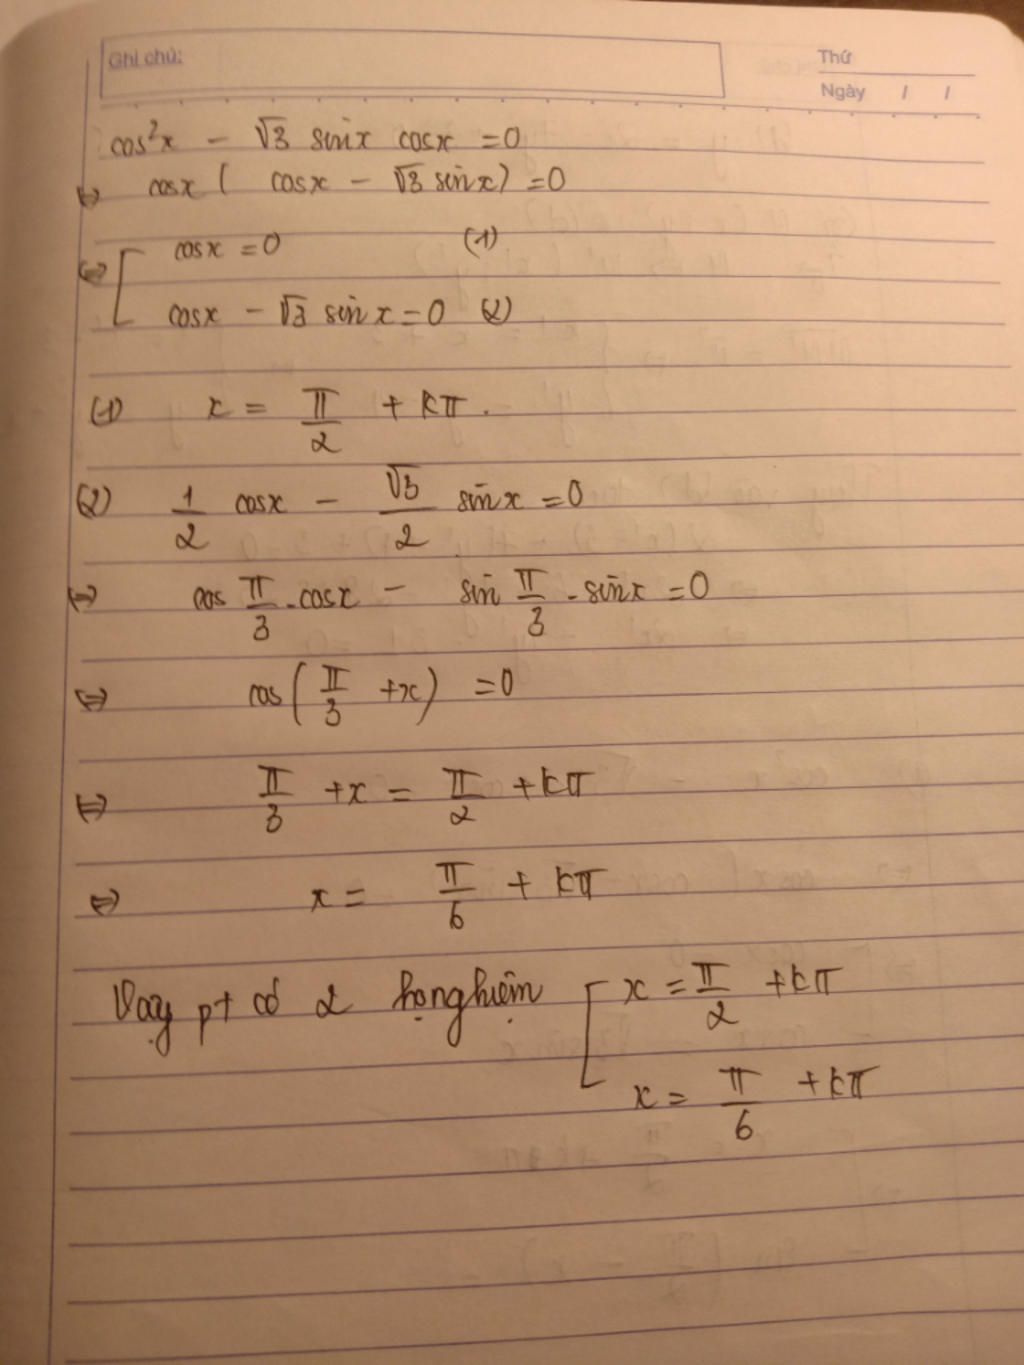 Ghi chú:
Thứ
Ngày / /
cos²x - √3 sinx cosx = 0
⇔ cosx ( cosx - √3 sinx) = 0
⇔ [ cosx = 0 (1)
cosx - √3 sinx = 0 (2)
(1) x = π/2 + kπ.
(2) 1/2 cosx - √3/2 sinx = 0
⇔ cos π/3 . cosx - sin π/3 . sinx = 0
⇔ cos(π/3 + x) = 0
⇔ π/3 + x = π/2 + kπ
⇔ x = π/6 + kπ
Vậy pt có 2 họ nghiệm [ x = π/2 + kπ
x = π/6 + kπ